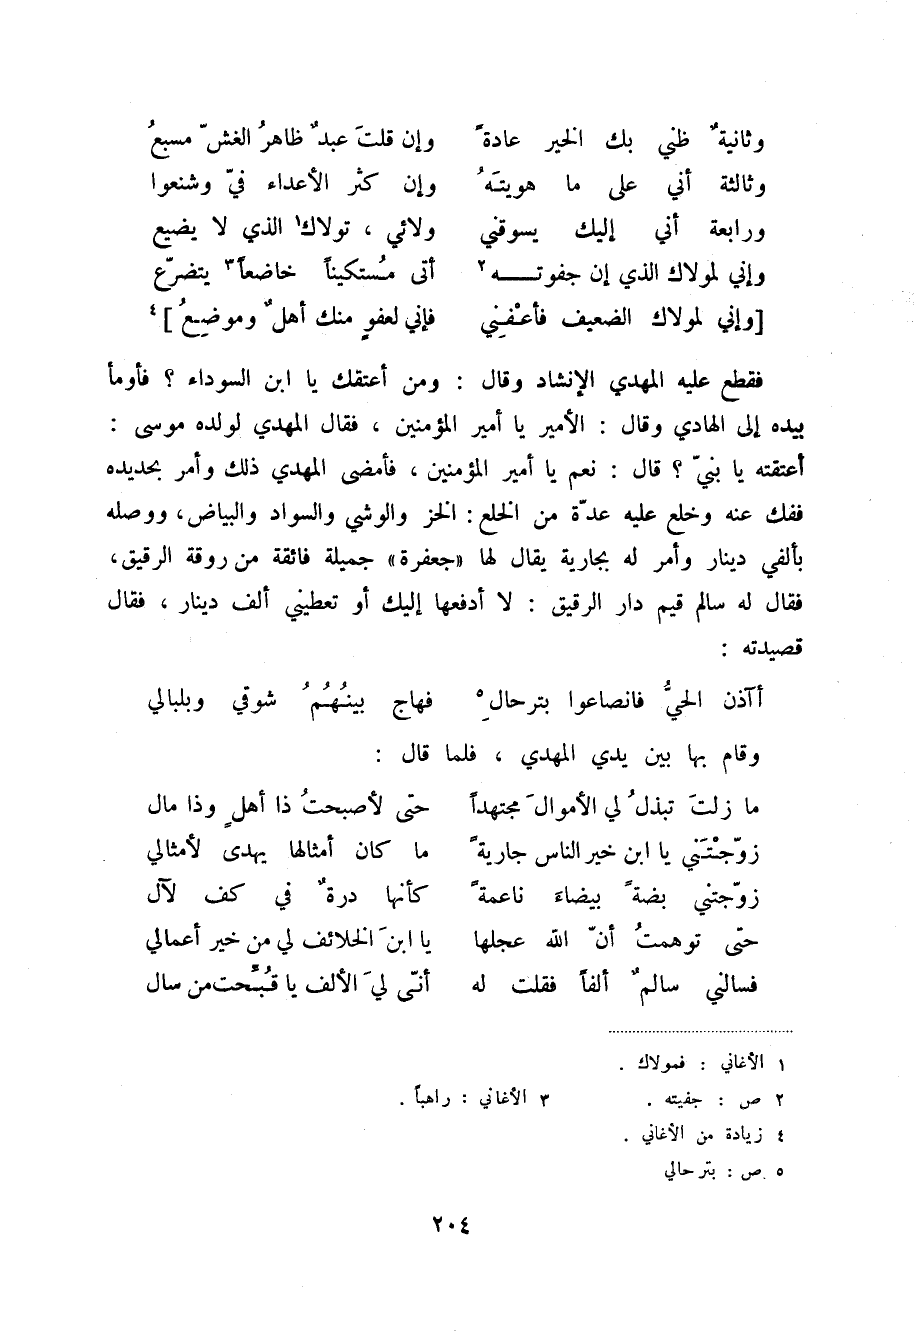 وثانيةٌ ظني بك الخير عادةً وإن قلتَ عبدٌ ظاهرُ الغشّ مسبعُ
وثالثة أني على ما هويتَهُ وإن كثر الأعداء فيّ وشنعوا
ورابعة أني إليك يسوقني ولائي ، تولاك١ الذي لا يضيع
وإني لمولاك الذي إن جفوتــه٢ أتى مُستكيناً خاضعاً٣ يتضرّع
[وإني لمولاك الضعيف فأعْفِني فإني لعفوٍ منك أهلٌ وموضِعُ]٤
فقطع عليه المهدي الإنشاد وقال : ومن أعتقك يا ابن السوداء ؟ فأومأ
بيده إلى الهادي وقال : الأمير يا أمير المؤمنين ، فقال المهدي لولده موسى :
أعتقته يا بنيّ ؟ قال : نعم يا أمير المؤمنين ، فأمضى المهدي ذلك وأمر بحديده
ففك عنه وخلع عليه عدّة من الخلع : الخز والوشي والسواد والبياض، ووصله
بألفي دينار وأمر له بجارية يقال لها «جعفرة» جميلة فائقة من روقة الرقيق،
فقال له سالم قيم دار الرقيق : لا أدفعها إليك أو تعطيني ألف دينار ، فقال
قصيدته :
أآذن الحيُّ فانصاعوا بترحالِ٥ فهاج بينُهُمُ شوقي وبلبالي
وقام بها بين يدي المهدي ، فلما قال :
ما زلتَ تبذلُ لي الأموالَ مجتهداً حتّى لأصبحتُ ذا أهلٍ وذا مال
زوّجْتَني يا ابن خير الناس جاريةً ما كان أمثالها يهدى لأمثالي
زوّجتني بضةً بيضاءَ ناعمةً كأنها درةٌ في كف لآل
حتّى توهمتُ أنّ الله عجلها يا ابنَ الخلائف لي من خير أعمالي
فسالني سالمٌ ألفاً فقلت له أنّى ليَ الألف يا قُبّحت من سال
١ الأغاني : فمولاك .
٢ ص : جفيته . ٣ الأغاني : راهباً .
٤ زيادة من الأغاني .
٥ ص : بترحالي
٢٠٤